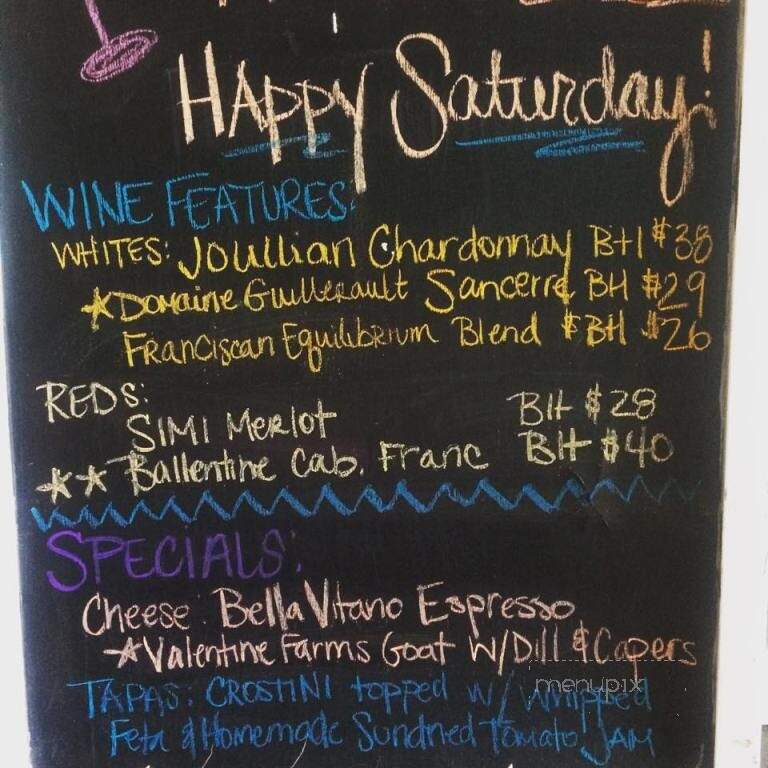 Happy Saturday!
WINE FEATURES:
WHITES: Joullian Chardonnay Btl $38
*Domaine Guillerault Sancerre Btl $29
Franciscan Equilibrium Blend Btl $26
REDS:
SIMI Merlot Btl $28
** Ballentine Cab. Franc Btl $40
SPECIALS:
Cheese: BellaVitano Espresso
*Valentine Farms Goat w/Dill & Capers
TAPAS: CROSTINI topped w/ Whipped
menupix
Feta & Homemade Sundried Tomato JAM